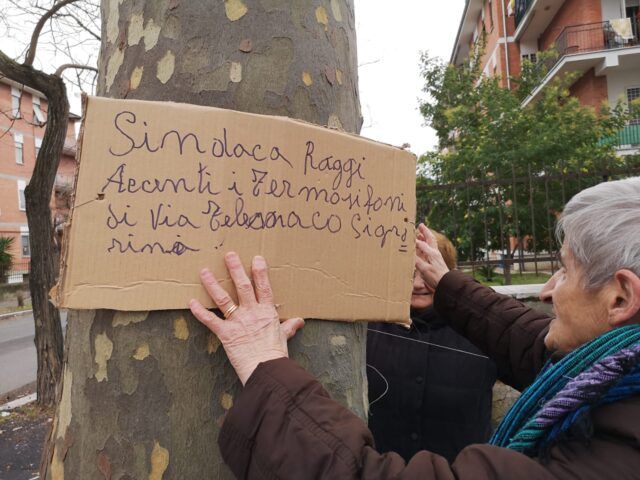 Sindaca Raggi
Accenti i Termosifoni
di Via Telemaco Signo
rino